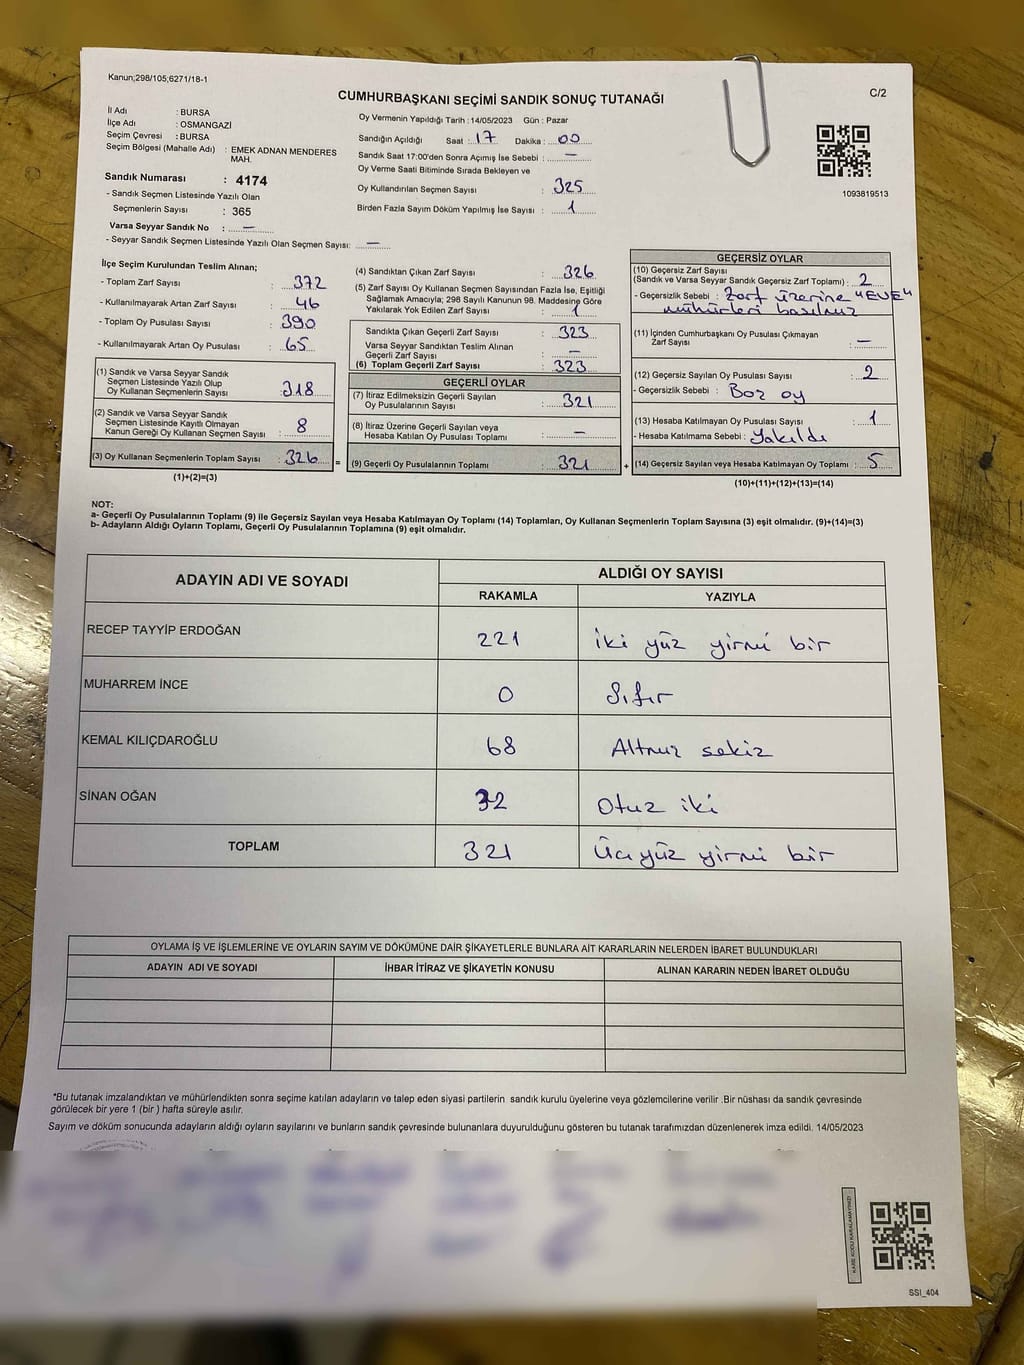 Kanun;298/105;6271/18-1
CUMHURBAŞKANI SEÇİMİ SANDIK SONUÇ TUTANAĞI
C/2
İl Adı : BURSA
İlçe Adı : OSMANGAZİ
Seçim Çevresi : BURSA
Seçim Bölgesi (Mahalle Adı) : EMEK ADNAN MENDERES
MAH.
Sandık Numarası : 4174
- Sandık Seçmen Listesinde Yazılı Olan
Seçmenlerin Sayısı : 365
Varsa Seyyar Sandık No : —
- Seyyar Sandık Seçmen Listesinde Yazılı Olan Seçmen Sayısı: —
Oy Vermenin Yapıldığı Tarih : 14/05/2023 Gün : Pazar
Sandığın Açıldığı Saat : 17 Dakika : 00
Sandık Saat 17:00'den Sonra Açımış İse Sebebi : —
Oy Verme Saati Bitiminde Sırada Bekleyen ve
Oy Kullandırılan Seçmen Sayısı : 325
Birden Fazla Sayım Döküm Yapılmış İse Sayısı : 1
1093819513
İlçe Seçim Kurulundan Teslim Alınan;
- Toplam Zarf Sayısı : 372
- Kullanılmayarak Artan Zarf Sayısı : 46
- Toplam Oy Pusulası Sayısı : 390
- Kullanılmayarak Artan Oy Pusulası : 65
(1) Sandık ve Varsa Seyyar Sandık
Seçmen Listesinde Yazılı Olup
Oy Kullanan Seçmenlerin Sayısı : 318
(2) Sandık ve Varsa Seyyar Sandık
Seçmen Listesinde Kayıtlı Olmayan
Kanun Gereği Oy Kullanan Seçmen Sayısı : 8
(3) Oy Kullanan Seçmenlerin Toplam Sayısı : 326
(1)+(2)=(3)
(4) Sandıktan Çıkan Zarf Sayısı : 326
(5) Zarf Sayısı Oy Kullanan Seçmen Sayısından Fazla İse, Eşitliği
Sağlamak Amacıyla; 298 Sayılı Kanunun 98. Maddesine Göre
Yakılarak Yok Edilen Zarf Sayısı : 1
Sandıkta Çıkan Geçerli Zarf Sayısı : 323
Varsa Seyyar Sandıktan Teslim Alınan
Geçerli Zarf Sayısı : —
(6) Toplam Geçerli Zarf Sayısı : 323
GEÇERLİ OYLAR
(7) İtiraz Edilmeksizin Geçerli Sayılan
Oy Pusulalarının Sayısı : 321
(8) İtiraz Üzerine Geçerli Sayılan veya
Hesaba Katılan Oy Pusulası Toplamı : —
= (9) Geçerli Oy Pusulalarının Toplamı : 321
GEÇERSİZ OYLAR
(10) Geçersiz Zarf Sayısı
(Sandık ve Varsa Seyyar Sandık Geçersiz Zarf Toplamı) : 2
- Geçersizlik Sebebi : Zarf üzerine "EVE"
mühürleri
(11) İçinden Cumhurbaşkanı Oy Pusulası Çıkmayan
Zarf Sayısı : —
(12) Geçersiz Sayılan Oy Pusulası Sayısı : 2
- Geçersizlik Sebebi : Boz oy
(13) Hesaba Katılmayan Oy Pusulası Sayısı : 1
- Hesaba Katılmama Sebebi : Yakıldı
+ (14) Geçersiz Sayılan veya Hesaba Katılmayan Oy Toplamı : 5
(10)+(11)+(12)+(13)=(14)
NOT:
a- Geçerli Oy Pusulalarının Toplamı (9) ile Geçersiz Sayılan veya Hesaba Katılmayan Oy Toplamı (14) Toplamları, Oy Kullanan Seçmenlerin Toplam Sayısına (3) eşit olmalıdır. (9)+(14)=(3)
b- Adayların Aldığı Oyların Toplamı, Geçerli Oy Pusulalarının Toplamına (9) eşit olmalıdır.
ADAYIN ADI VE SOYADI ALDIĞI OY SAYISI
RAKAMLA YAZIYLA
RECEP TAYYİP ERDOĞAN 221 iki yüz yirmi bir
MUHARREM İNCE 0 Sıfır
KEMAL KILIÇDAROĞLU 68 Altmız sekiz
SİNAN OĞAN 32 Otuz iki
TOPLAM 321 Üçyüz yirmi bir
OYLAMA İŞ VE İŞLEMLERİNE VE OYLARIN SAYIM VE DÖKÜMÜNE DAİR ŞİKAYETLERLE BUNLARA AİT KARARLARIN NELERDEN İBARET BULUNDUKLARI
ADAYIN ADI VE SOYADI İHBAR İTİRAZ VE ŞİKAYETİN KONUSU ALINAN KARARIN NEDEN İBARET OLDUĞU
*Bu tutanak imzalandıktan ve mühürlendikten sonra seçime katılan adayların ve talep eden siyasi partilerin sandık kurulu üyelerine veya gözlemcilerine verilir .Bir nüshası da sandık çevresinde
görülecek bir yere 1 (bir ) hafta süreyle asılır.
Sayım ve döküm sonucunda adayların aldığı oyların sayılarını ve bunların sandık çevresinde bulunanlara duyurulduğunu gösteren bu tutanak tarafımızdan düzenlenerek imza edildi. 14/05/2023
KARE KODU KARALAMAYINIZ!
SSI_404